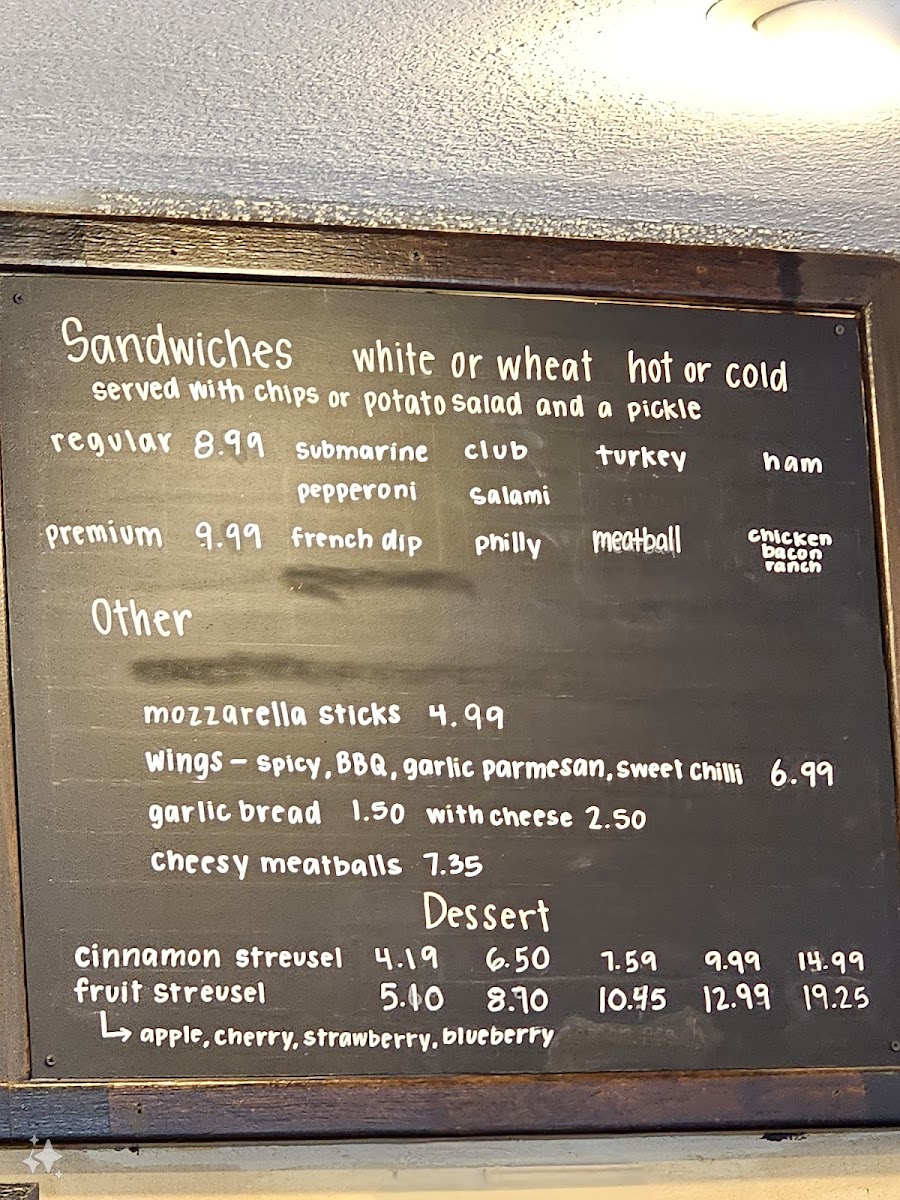 Sandwiches white or wheat hot or cold
served with chips or potato salad and a pickle
regular 8.99 submarine club turkey ham
pepperoni salami
premium 9.99 french dip philly meatball chicken bacon ranch
Other
mozzarella sticks 4.99
wings - spicy, BBQ, garlic parmesan, sweet chilli 6.99
garlic bread 1.50 with cheese 2.50
cheesy meatballs 7.35
Dessert
cinnamon streusel 4.19 6.50 7.59 9.99 14.99
fruit streusel 5.10 8.70 10.45 12.99 19.25
↳ apple, cherry, strawberry, blueberry